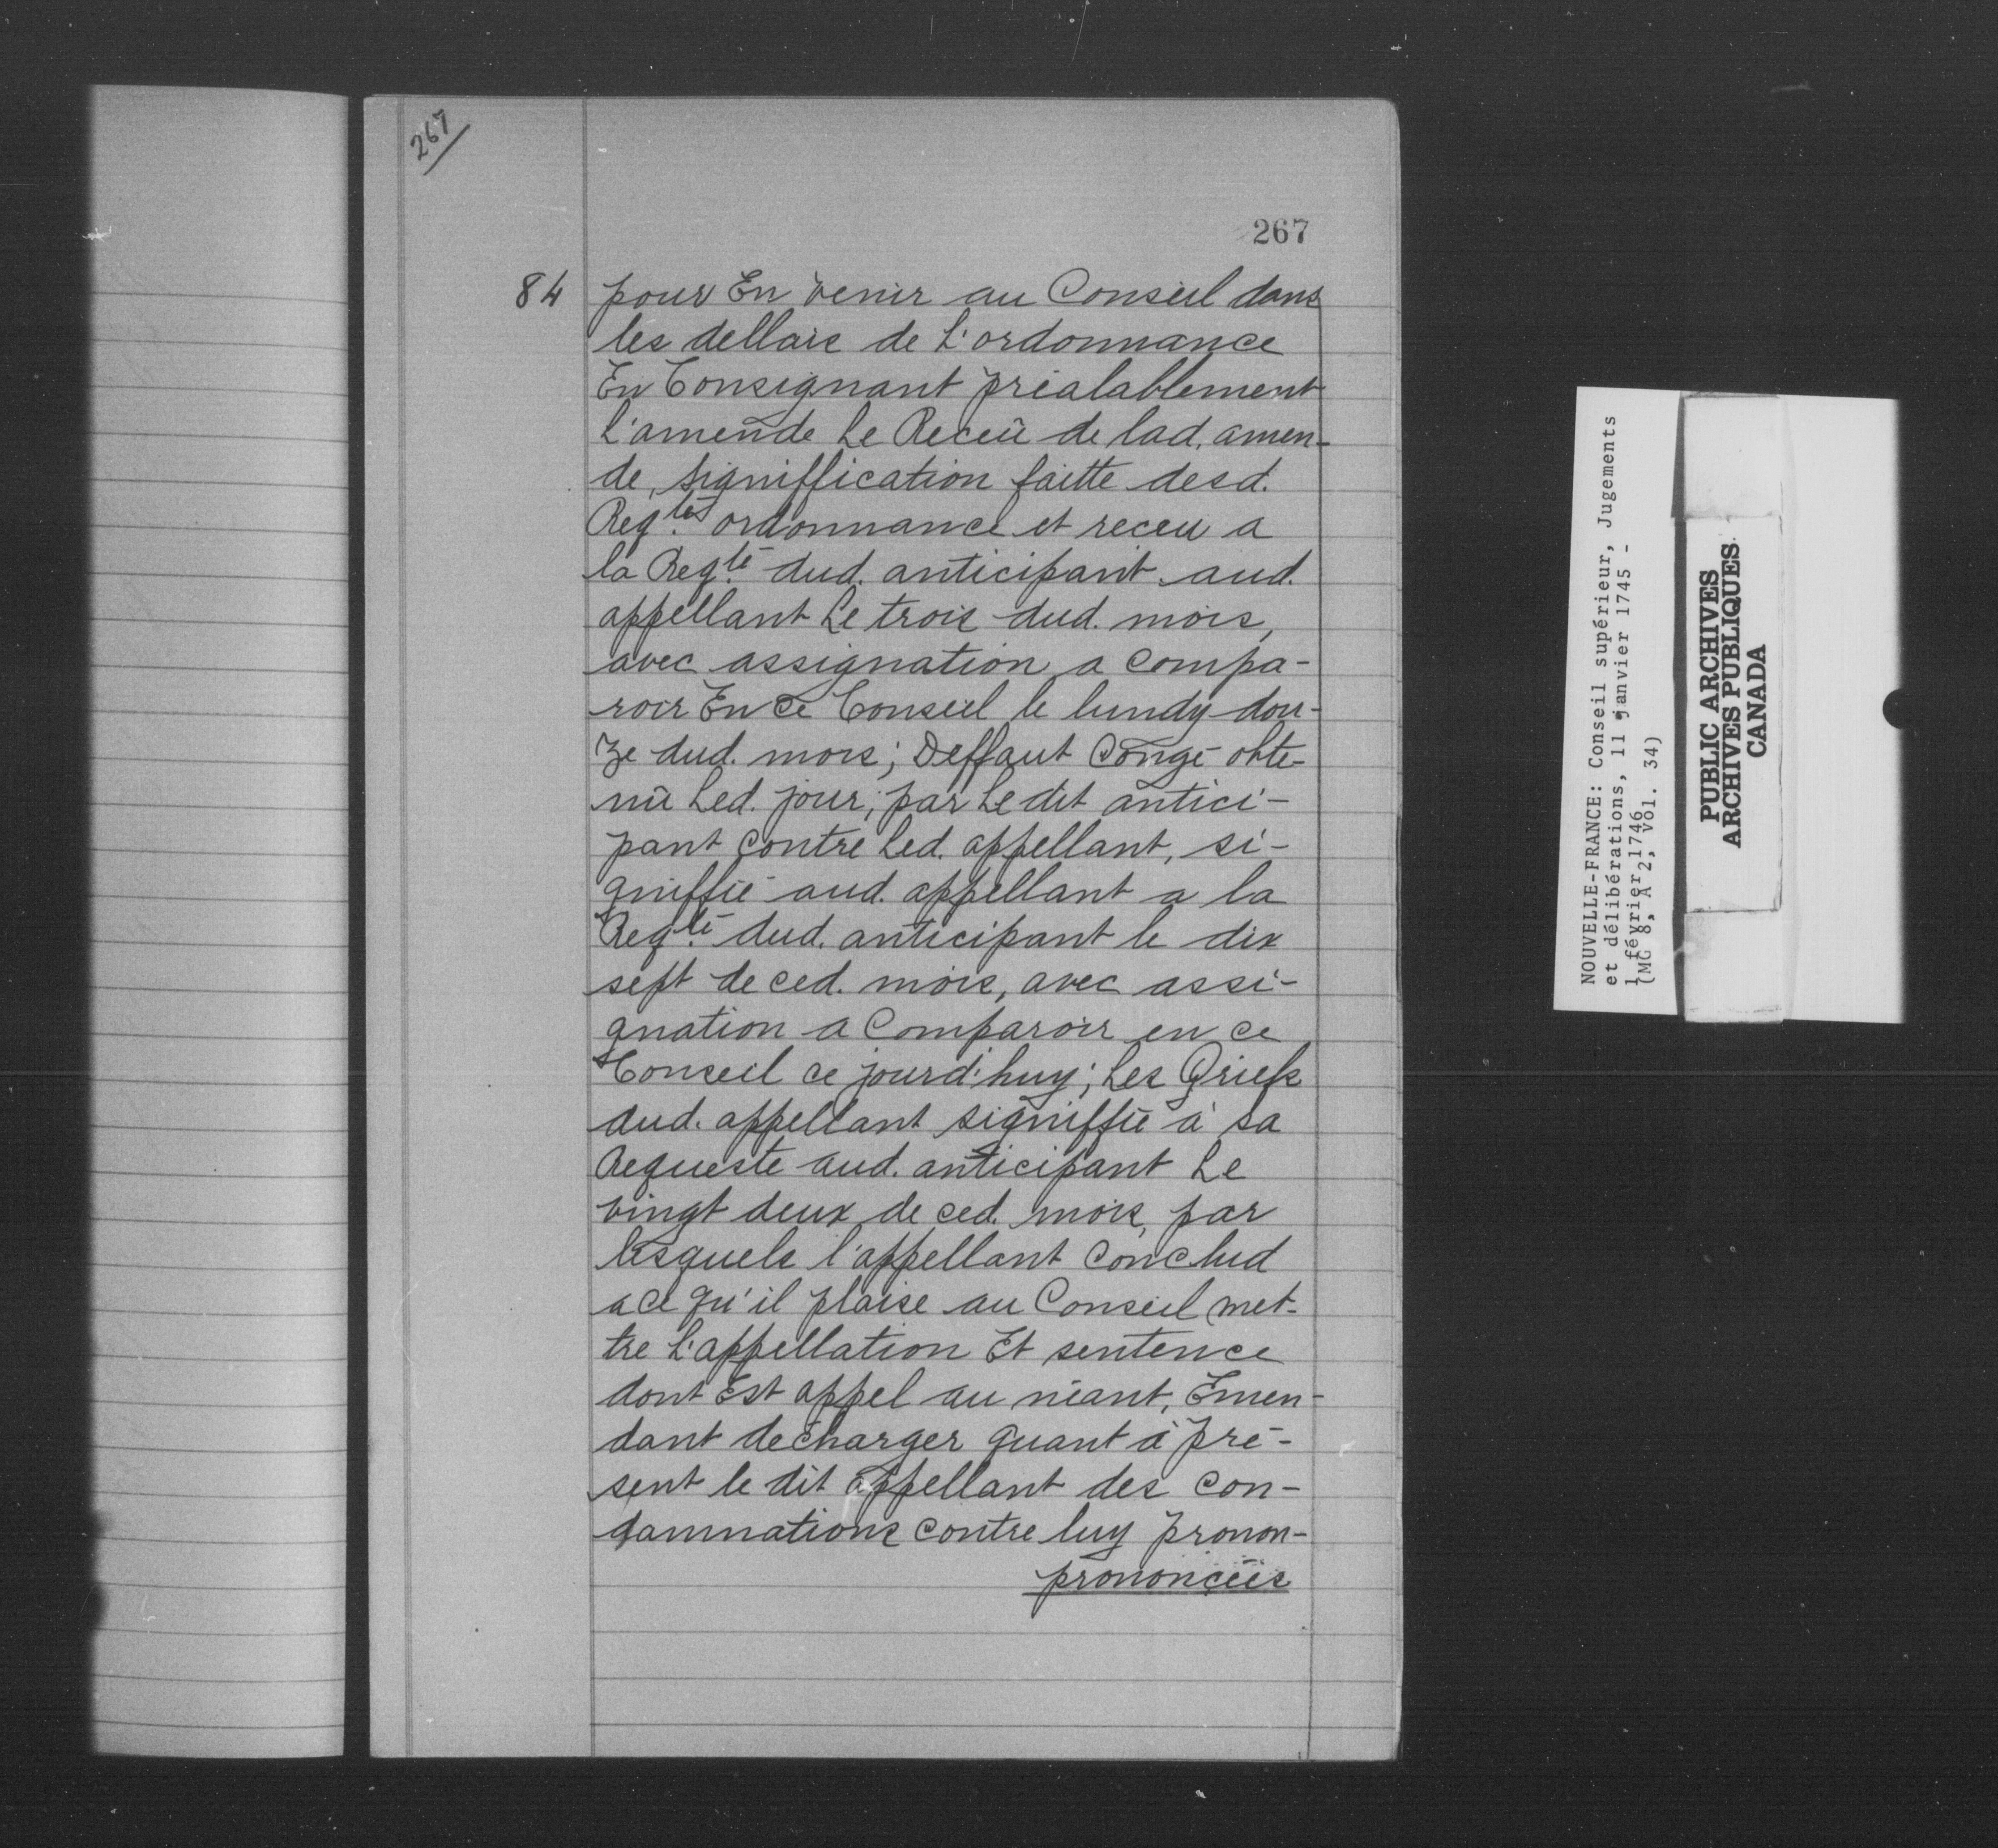 267
267
84
pour En venir au Conseil dans
les dellais de L'ordonnance
En Consignant préalablement
L'amende Le Receû de lad. amen-
de, signiffication faitte desd.
Reqtes ordonnance et receu a
la Reqte dud. anticipant aud.
appellant Le trois dud. mois,
avec assignation a compa-
roir En ce Conseil le lundy dou-
ze dud. mois; Deffaut Congé obte-
nû Led. jour, par Le dit antici-
pant contre Led. appellant, si-
gniffié aud. appellant a la
Reqte dud. anticipant le dix
sept de ced. mois, avec assi-
gnation a Comparoir en ce
Conseil ce jourd'huy; Les Griefs
dud. appellant signiffié à sa
Requeste aud. anticipant Le
vingt deux de ced. mois, par
lesquels l'appellant Conclud
a ce qu'il plaise au Conseil met-
tre L'appellation Et sentence
dont Est appel au néant, Emen-
dant decharger quant à pré-
sent le dit appellant des con-
damnations contre luy pronon-
prononcées
NOUVELLE-FRANCE: Conseil supérieur, Jugements
et délibérations, 11 janvier 1745 -
1 février 1746
(MG 8, A 2, vol. 34)
PUBLIC ARCHIVES
ARCHIVES PUBLIQUES
CANADA